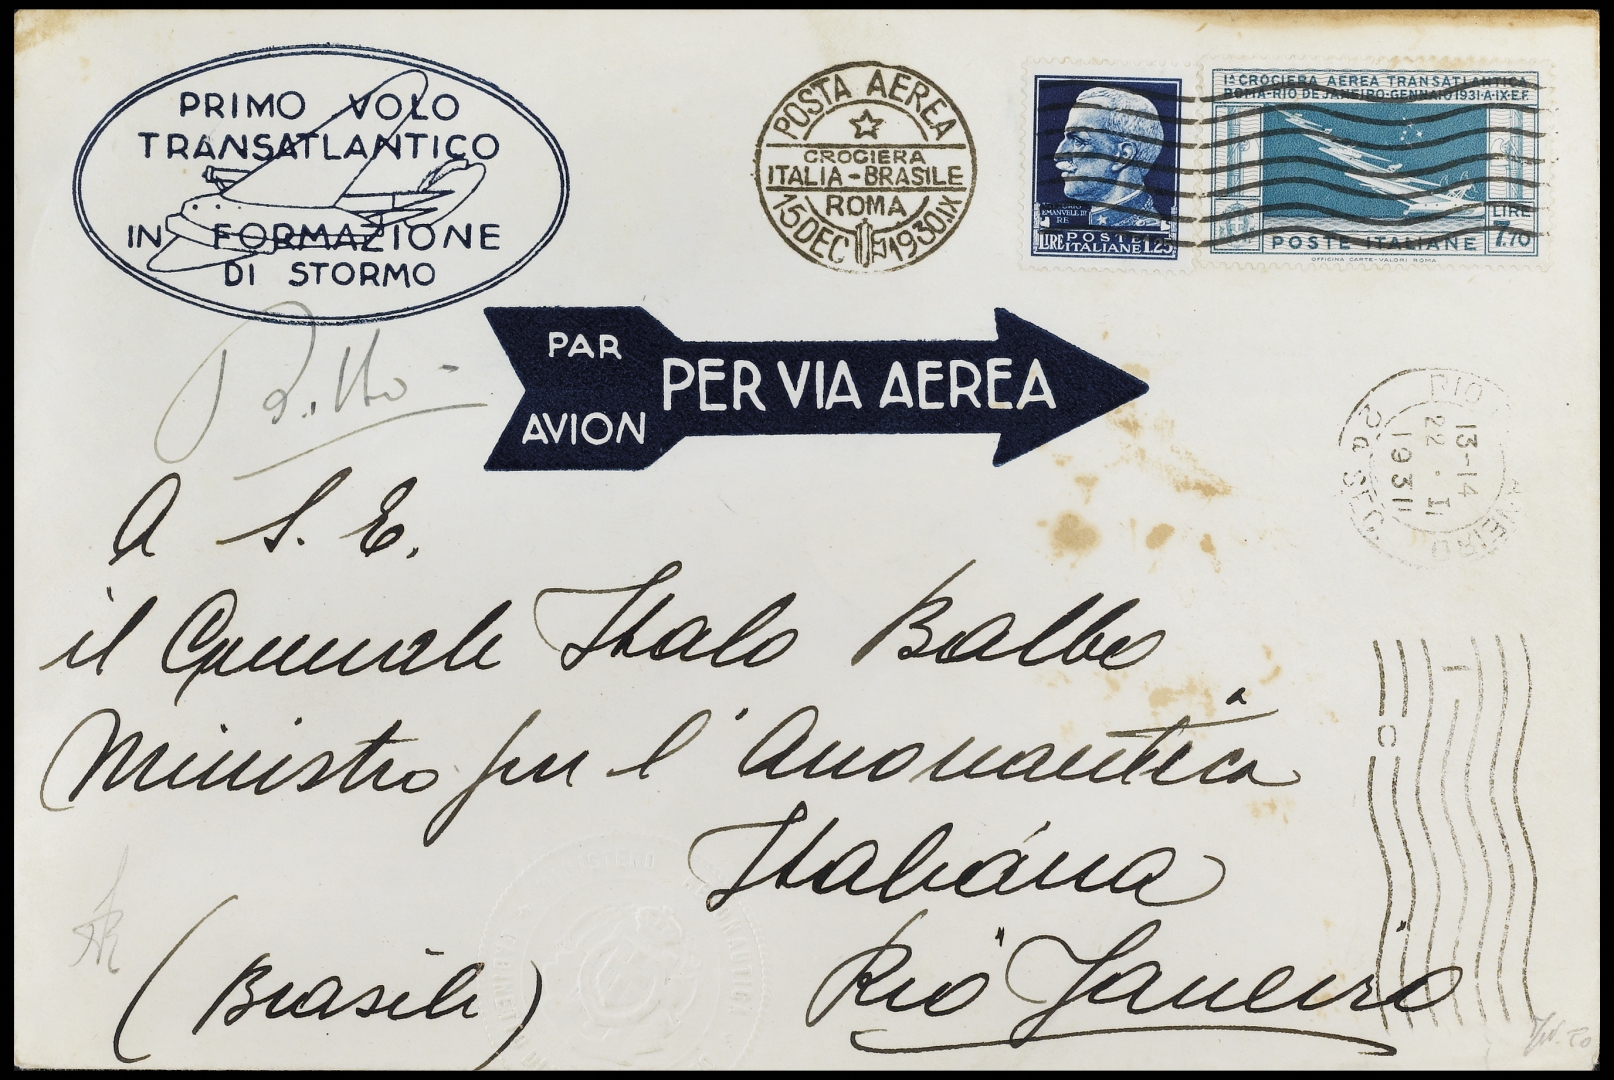 PRIMO VOLO
TRANSATLANTICO
IN FORMAZIONE
DI STORMO
POSTA AEREA
CROCIERA
ITALIA-BRASILE
ROMA
15 DEC 1930 IX
EMANVELE III
RE
LIRE POSTE ITALIANE 1.25
1ª CROCIERA AEREA TRANSATLANTICA
ROMA-RIO DE JANEIRO-GENNAIO 1931-A·IX·E·F·
LIRE
7.70
POSTE ITALIANE
OFFICINA CARTE-VALORI ROMA
PAR
AVION
PER VIA AEREA
RIO JANEIRO
13-14
22 . I
1931
2a SEC
A S. E.
il Generale Italo Balbo
Ministro per l'Aeronautica
Italiana
Rio Janeiro
(Brasile)